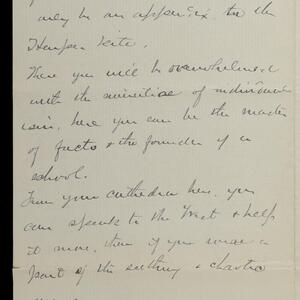 only be an appendix to the
There you will be overwhelmed
with the minutiae of individual
here you can be the master
of facts & the founder of a
school.
From your cathedra here, you
can speak to the &  help
it more, than if you were a
part of the seething & chaotic